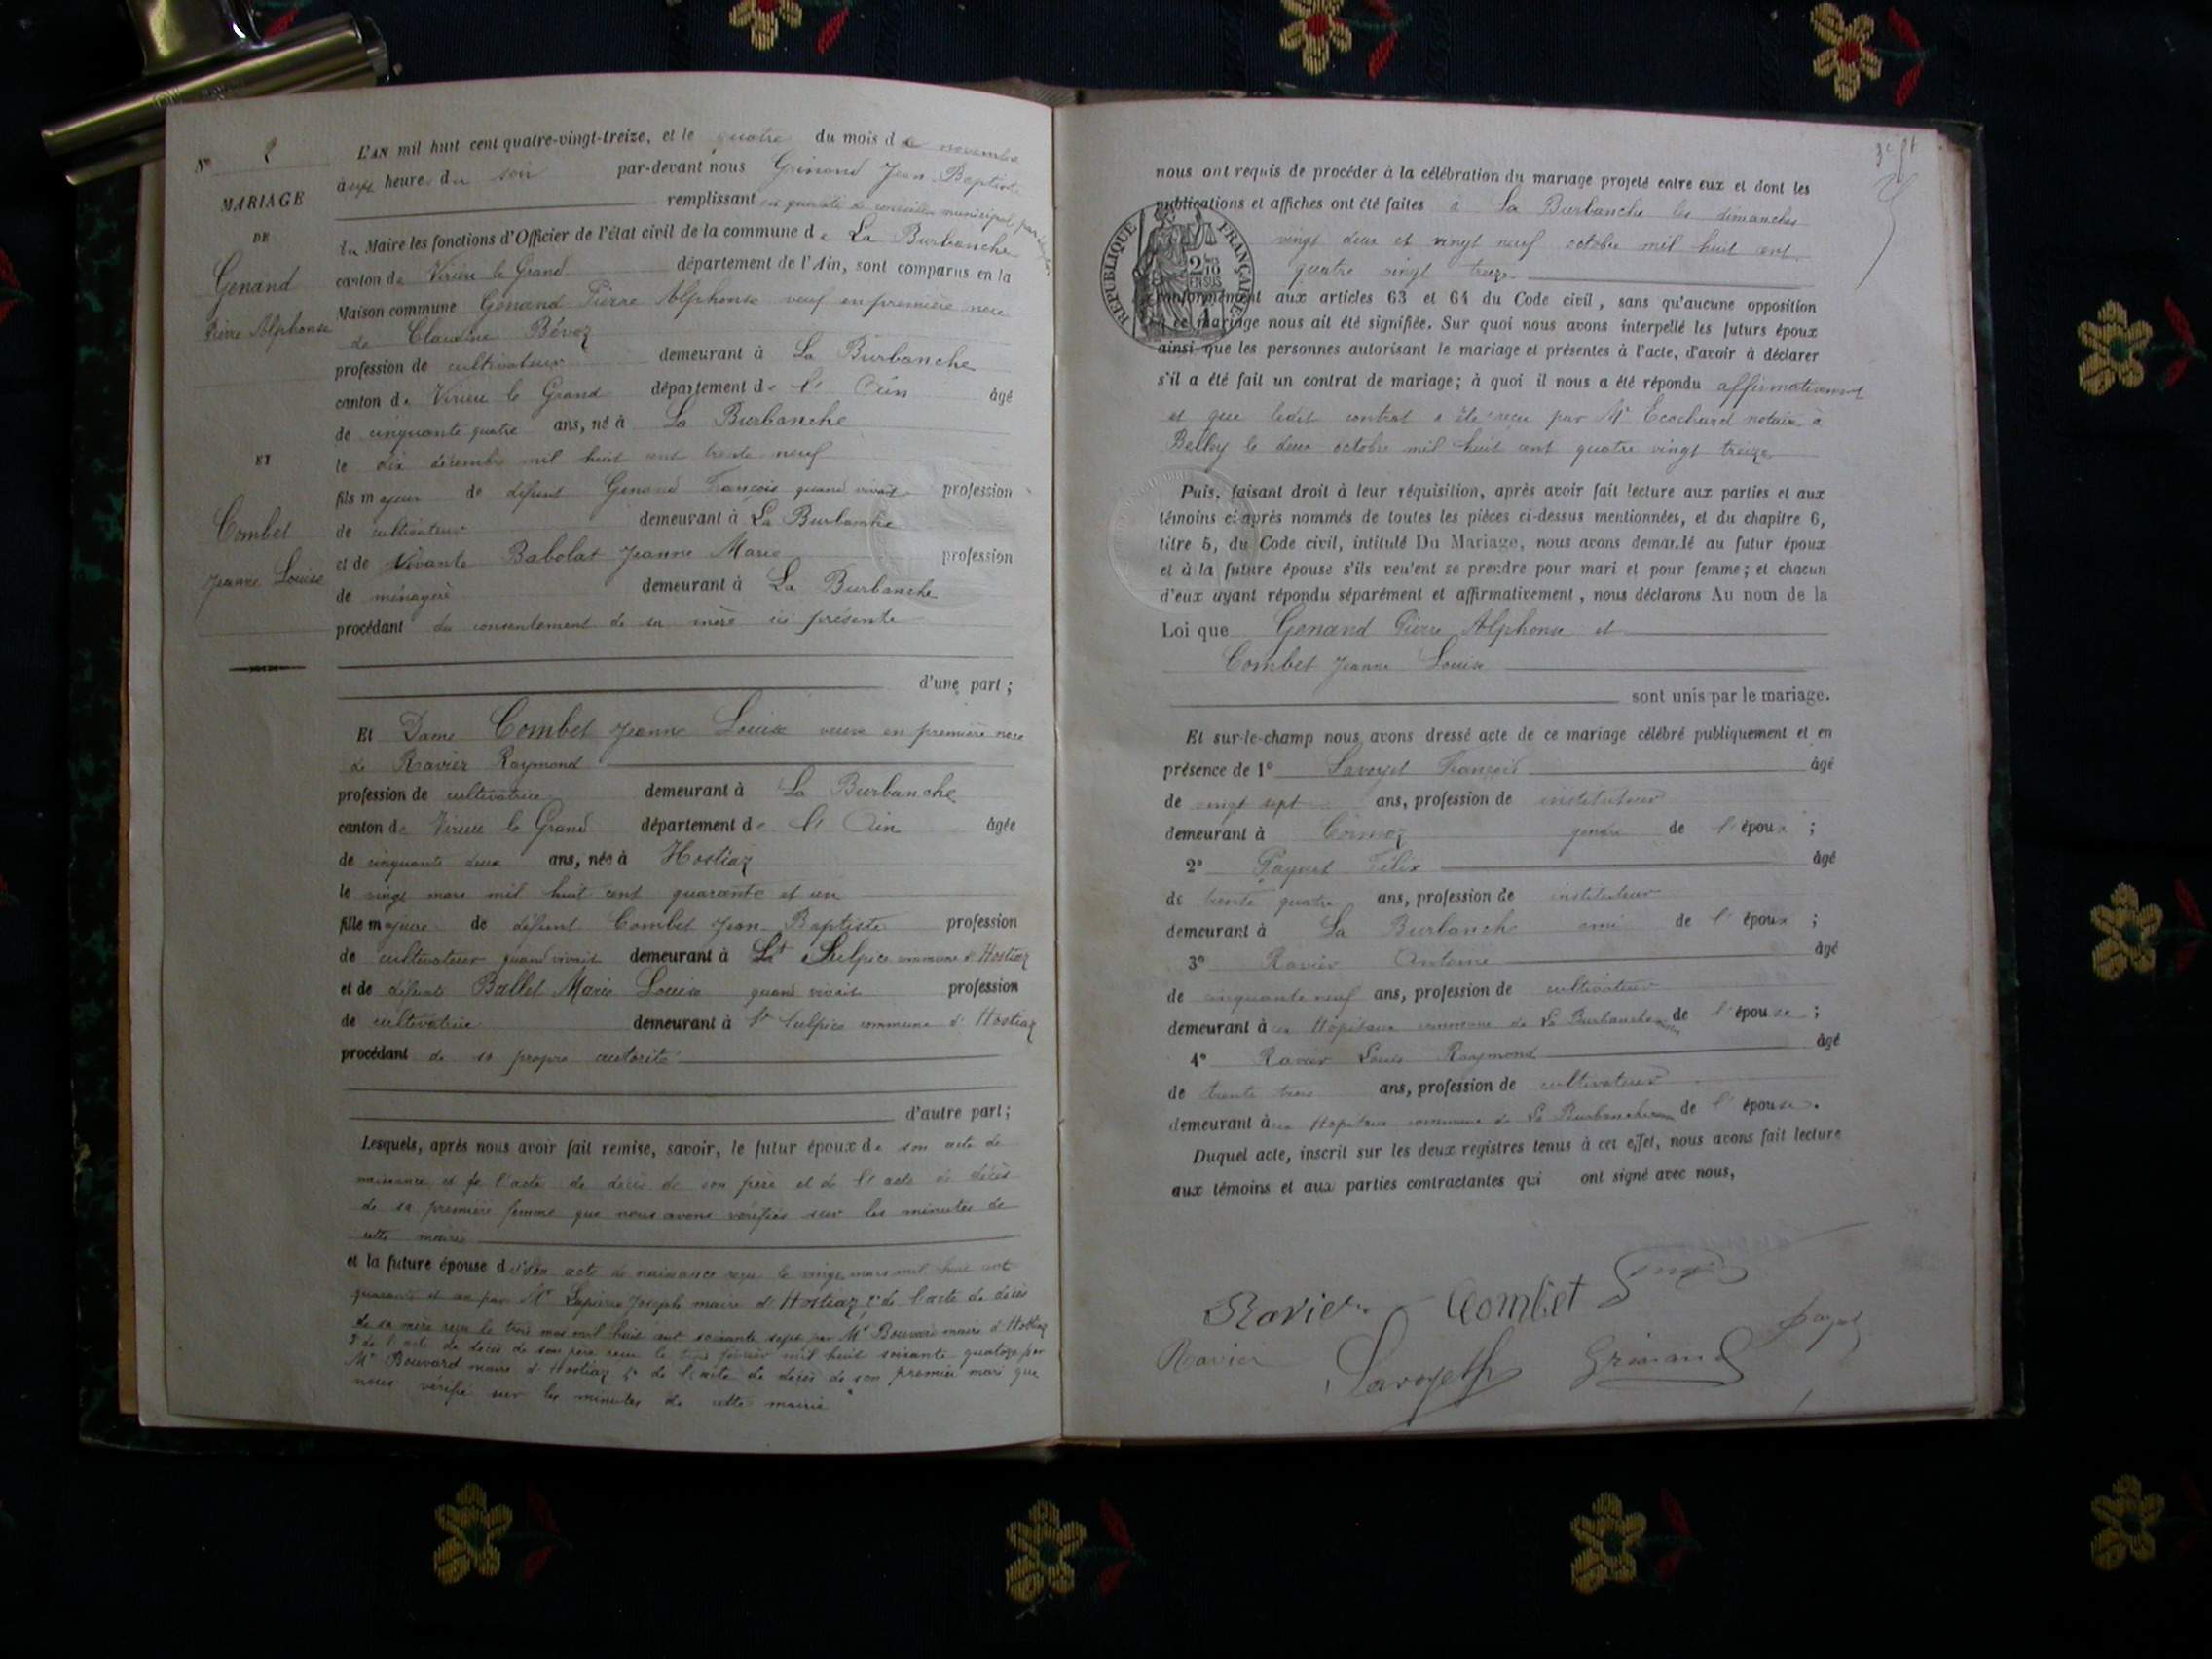 N° 2
MARIAGE
DE
Genand
Pierre Alphonse
ET
Combet
Jeanne Louise
L'AN mil huit cent quatre-vingt-treize, et le quatre du mois de novembre
à sept heures du soir par-devant nous Grinand Jean Baptiste
remplissant en qualité de conseiller municipal par
du Maire les fonctions d'Officier de l'état civil de la commune de La Burbanche
canton de Virieu le Grand département de l'Ain, sont comparus en la
Maison commune Genand Pierre Alphonse veuf en première noce
de Claudine Bévoz
profession de cultivateur demeurant à La Burbanche
canton de Virieu le Grand département de l' Ain âgé
de cinquante quatre ans, né à La Burbanche
le dix décembre mil huit cent trente neuf
fils majeur de défunt Genand François quand vivait profession
de cultivateur demeurant à La Burbanche
et de vivante Babolat Jeanne Marie profession
de ménagère demeurant à La Burbanche
procédant du consentement de sa mère ici présente
d'une part ;
Et Dame Combet Jeanne Louise veuve en première noce
de Ravier Raymond
profession de cultivatrice demeurant à La Burbanche
canton de Virieu le Grand département de l' Ain âgée
de cinquante deux ans, née à Hostiaz
le vingt mars mil huit cent quarante et un
fille majeure de défunt Combet Jean Baptiste profession
de cultivateur quand vivait demeurant à St Sulpice commune d'Hostiaz
et de défunte Ballet Marie Louise quand vivait profession
de cultivatrice demeurant à St Sulpice commune d'Hostiaz
procédant de sa propre autorité
d'autre part ;
Lesquels, après nous avoir fait remise, savoir, le futur époux de son acte de
naissance et de l'acte de décès de son père et de l'acte de décès
de sa première femme que nous avons vérifiés sur les minutes de
cette mairie
et la future épouse de son acte de naissance reçu le vingt mars mil huit cent
quarante et un par Mr Lapierre Joseph maire d'Hostiaz, 2° de l'acte de décès
de sa mère reçu le trois mai mil huit cent soixante sept par Mr Bouvard maire d'Hostiaz
3° de l'acte de décès de son père reçu le trois février mil huit soixante quatorze par
Mr Bouvard maire d'Hostiaz 4° de l'acte de décès de son premier mari que
nous vérifié sur les minutes de cette mairie
nous ont requis de procéder à la célébration du mariage projeté entre eux et dont les
publications et affiches ont été faites à La Burbanche les dimanches
vingt deux et vingt neuf octobre mil huit cent
quatre vingt treize
RÉPUBLIQUE FRANÇAISE
conformément aux articles 63 et 64 du Code civil, sans qu'aucune opposition
à ce mariage nous ait été signifiée. Sur quoi nous avons interpellé les futurs époux
ainsi que les personnes autorisant le mariage et présentes à l'acte, d'avoir à déclarer
s'il a été fait un contrat de mariage; à quoi il nous a été répondu affirmativement
et que ledit contrat a été reçu par Mr Ecochard notaire à
Belley le deux octobre mil huit cent quatre vingt treize
Puis, faisant droit à leur réquisition, après avoir fait lecture aux parties et aux
témoins ci-après nommés de toutes les pièces ci-dessus mentionnées, et du chapitre 6,
titre 5, du Code civil, intitulé Du Mariage, nous avons demandé au futur époux
et à la future épouse s'ils veulent se prendre pour mari et pour femme ; et chacun
d'eux ayant répondu séparément et affirmativement, nous déclarons Au nom de la
Loi que Genand Pierre Alphonse et
Combet Jeanne Louise
sont unis par le mariage.
Et sur-le-champ nous avons dressé acte de ce mariage célébré publiquement et en
présence de 1° Savoyet François âgé
de vingt sept ans, profession de instituteur
demeurant à gendre de l'époux ;
2° Payet Félix âgé
de trente quatre ans, profession de instituteur
demeurant à La Burbanche ami de l'époux ;
3° Ravier Antoine âgé
de cinquante neuf ans, profession de cultivateur
demeurant à Hopitaux commune de La Burbanche de l'épouse ;
4° Ravier Louis Raymond âgé
de trente trois ans, profession de cultivateur
demeurant à Hopitaux commune de La Burbanche de l'épouse.
Duquel acte, inscrit sur les deux registres tenus à cet effet, nous avons fait lecture
aux témoins et aux parties contractantes qui ont signé avec nous,
Ravier Combet
Payet
Ravier Savoyet Grinand